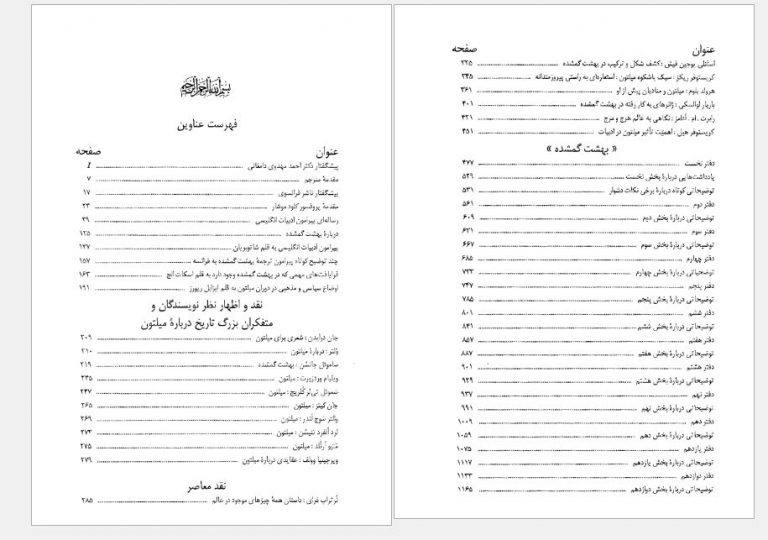 بسم الله الرحمن الرحیم
فهرست عناوین
عنوان صفحه
پیشگفتار دکتر احمد مهدوی دامغانی I
مقدمهٔ مترجم ۷
پیشگفتار ناشر فرانسوی ۱۷
مقدمهٔ پروفسور کلود موشار ۲۳
رساله‌ای پیرامون ادبیات انگلیسی ۴۹
دربارهٔ بهشت گمشده ۱۲۵
پیرامون ادبیات انگلیسی به قلم شاتوبریان ۱۳۷
چند توضیح کوتاه پیرامون ترجمهٔ بهشت گمشده به فرانسه ۱۵۷
قرابافت‌های مهمی که در بهشت گمشده وجود دارد به قلم اسکات الج ۱۶۳
اوضاع سیاسی و مذهبی در دوران میلتون به قلم ایزابل ریورز ۱۹۱
نقد و اظهار نظر نویسندگان و
متفکران بزرگ تاریخ دربارهٔ میلتون
جان درایدن : شعری برای میلتون ۲۰۹
ولتر : دربارهٔ میلتون ۲۱۰
ساموئل جانسن : بهشت گمشده ۲۱۹
ویلیام وودزورت : میلتون ۲۴۵
سموئل تی‌لر کلریج : میلتون ۲۴۷
جان کیتز : میلتون ۲۶۵
والتر سوج لندر : میلتون ۲۶۹
لرد آلفرد تنیسن : میلتون ۲۷۴
متیو آرنلد : میلتون ۲۷۵
ویرجینیا وولف : عقایدی دربارهٔ میلتون ۲۷۹
نقد معاصر
نُرتراپ فرای : داستان همهٔ چیزهای موجود در عالم ۲۸۵
عنوان صفحه
استنلی یوجین فیش : کشف شکل و ترکیب در بهشت گمشده ۳۲۵
کریستوفر ریکز : سبک باشکوه میلتون : استعاره‌ای به راستی پیروزمندانه ۳۴۵
هرولد بلوم : میلتون و منادیان پیش از او ۳۶۱
باربار لوالسکی : ژانرهای به کار رفته در بهشت گمشده ۴۰۱
رابرت . ام . آدامز : نگاهی به عالم هرج و مرج ۴۲۱
کریستوفر هیل : اهمیّت تأثیر میلتون در ادبیات ۴۵۱
« بهشت گمشده »
دفتر نخست ۴۷۷
یادداشت‌هایی دربارهٔ بخش نخست ۵۲۹
توضیحاتی کوتاه دربارهٔ برخی نکات دشوار ۵۳۱
دفتر دوم ۵۶۱
توضیحاتی دربارهٔ بخش دوم ۶۰۹
دفتر سوم ۶۳۱
توضیحاتی دربارهٔ بخش سوم ۶۶۷
دفتر چهارم ۶۸۵
توضیحیاتی دربارهٔ بخش چهارم ۷۳۳
دفتر پنجم ۷۴۷
توضیحاتی دربارهٔ بخش پنجم ۷۸۵
دفتر ششم ۸۰۱
توضیحاتی دربارهٔ بخش ششم ۸۴۱
دفتر هفتم ۸۵۷
توضیحاتی دربارهٔ بخش هفتم ۸۸۷
دفتر هشتم ۹۰۱
توضیحاتی دربارهٔ بخش هشتم ۹۲۹
دفتر نهم ۹۳۷
توضیحاتی دربارهٔ بخش نهم ۹۹۱
دفتر دهم ۱۰۰۹
توضیحاتی دربارهٔ بخش دهم ۱۰۵۹
دفتر یازدهم ۱۰۷۵
توضیحاتی دربارهٔ بخش یازدهم ۱۱۱۷
دفتر دوازدهم ۱۱۳۳
توضیحاتی دربارهٔ بخش دوازدهم ۱۱۶۵